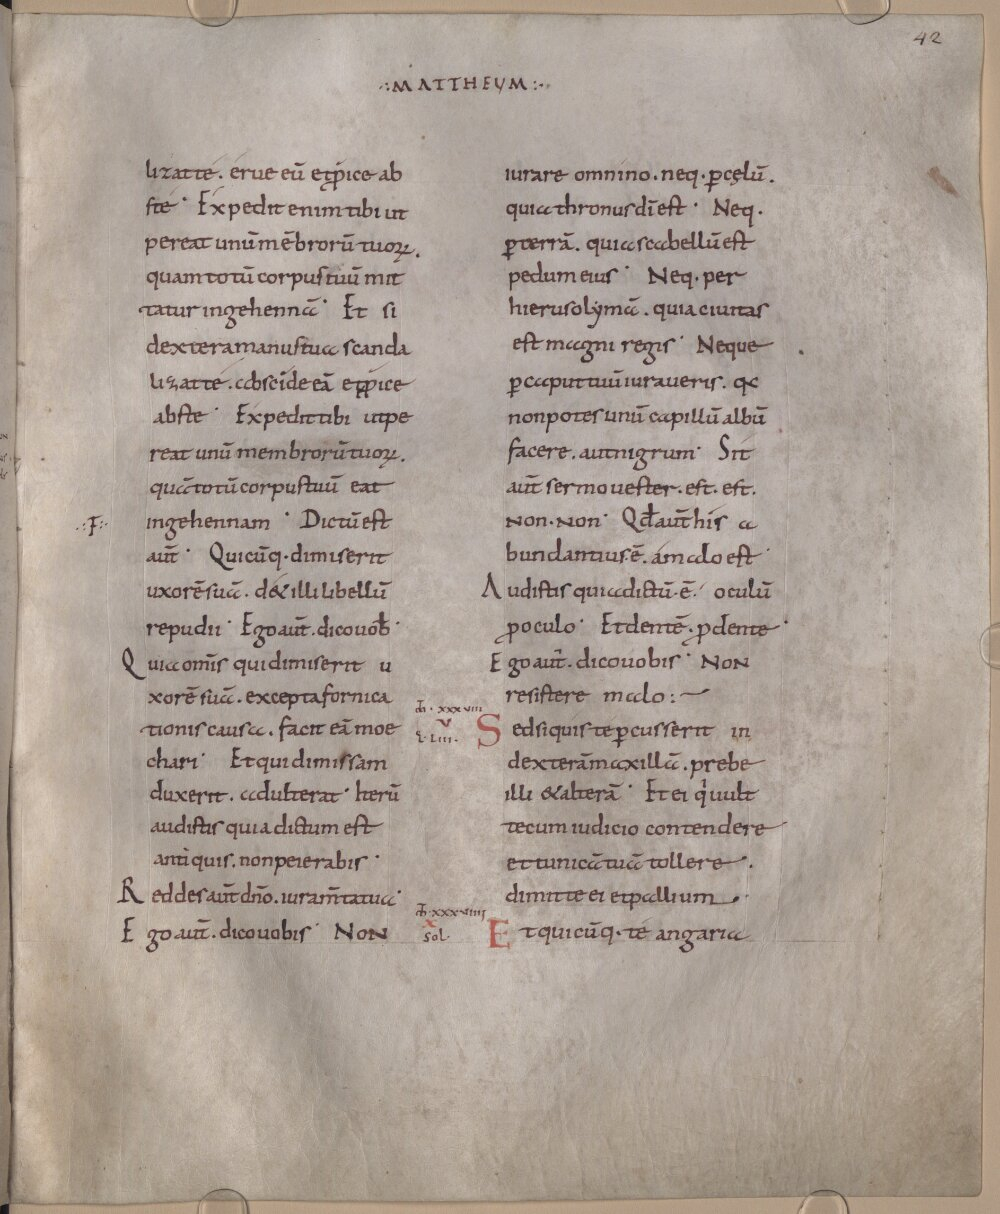 42
·:MATTHEUM:·
lizat te. erue eū et ꝓice ab
s te· Expedit enim tibi ut
pereat unū mēbrorū tuoꝝ.
quam totū corpus tuū mit
tatur in gehennā· Et si
dextera manus tua scanda
lizat te. abscide eā et ꝓice
abs te· Expedit tibi ut pe
reat unū membrorū tuoꝝ.
quā totū corpus tuū eat
in gehennam· Dictū est
aut̄· Quicūq· dimiserit
uxorē suā. d& illi libellū
repudii· Ego aut̄. dico uob̄·
Quia omīs qui dimiserit u
xorē suā. excepta fornica
tionis causa. facit eā moe
chari· Et qui dimissam
duxerit. adulterat· Iterū
audistis quia dictum est
antiquis. non peierabis·
Reddes aut̄ dn̄o. iuram̄ta tua·
Ego aut̄. dico uobis· NON
·:F:·
iurare omnino. neq· ꝑ cęlū.
quia thronus dī est· Neq·
ꝑ terrā. quia scabellū est
pedum eius· Neq· per
hierusolymā. quia ciuitas
est magni regis· Neque
ꝑ caput tuū iuraueris. qa
non potes unū capillū albū
facere. aut nigrum· Sit
aut̄ sermo uester. est. est.
non· non· Qđ aut̄ his a
bundantius ē. a malo est·
Audistis quia dictū ē. oculū
ꝓ oculo· Et dentē. ꝓ dente·
Ego aut̄. dico uobis· NON
resistere malo:~
ṁ· xxxviii
v
L· Liii·
Sed si quis te ꝑcusserit in
dexterā maxillā. prebe
illi & alterā· Et ei qͥ uult
tecum iudicio contendere
et tunicā tuā tollere·
dimitte ei et pallium·
ṁ· xxxviiii
x
Sol·
Et quicūq· te angaria